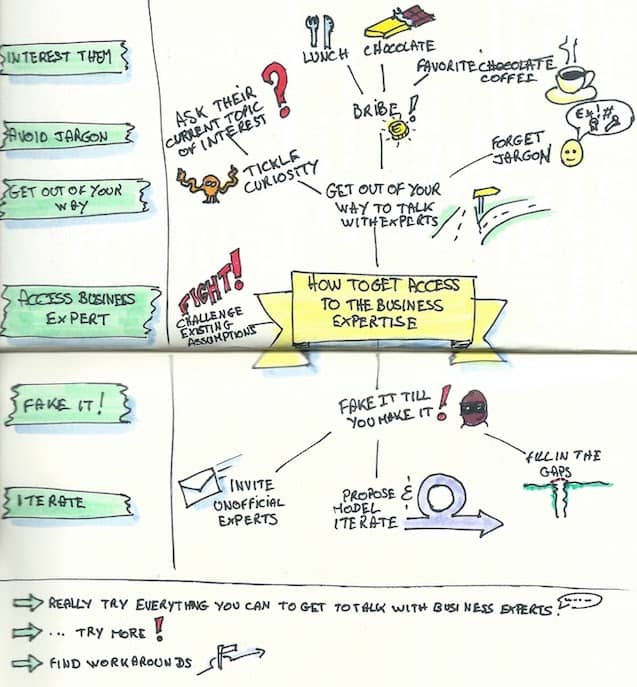 INTEREST THEM
AVOID JARGON
GET OUT OF YOUR
WAY
ACCESS BUSINESS
EXPERT
FAKE IT!
ITERATE
LUNCH
CHOCOLATE
FAVORITE CHOCOLATE
COFFEE
BRIBE!
ASK THEIR
CURRENT TOPIC
OF INTEREST
?
TICKLE
CURIOSITY
FORGET
JARGON
€*!#
GET OUT OF YOUR
WAY TO TALK
WITH EXPERTS
FIGHT!
CHALLENGE
EXISTING
ASSUMPTIONS
HOW TO GET ACCESS
TO THE BUSINESS
EXPERTISE
FAKE IT TILL
YOU MAKE IT!
INVITE
UNOFFICIAL
EXPERTS
PROPOSE &
MODEL
ITERATE
FILL IN THE
GAPS
REALLY TRY EVERYTHING YOU CAN TO GET TO TALK WITH BUSINESS EXPERTS!
... TRY MORE!
FIND WORKAROUNDS